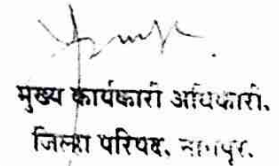 मुख्य कार्यकारी अधिकारी.
जिल्हा परिषद, नागपूर.